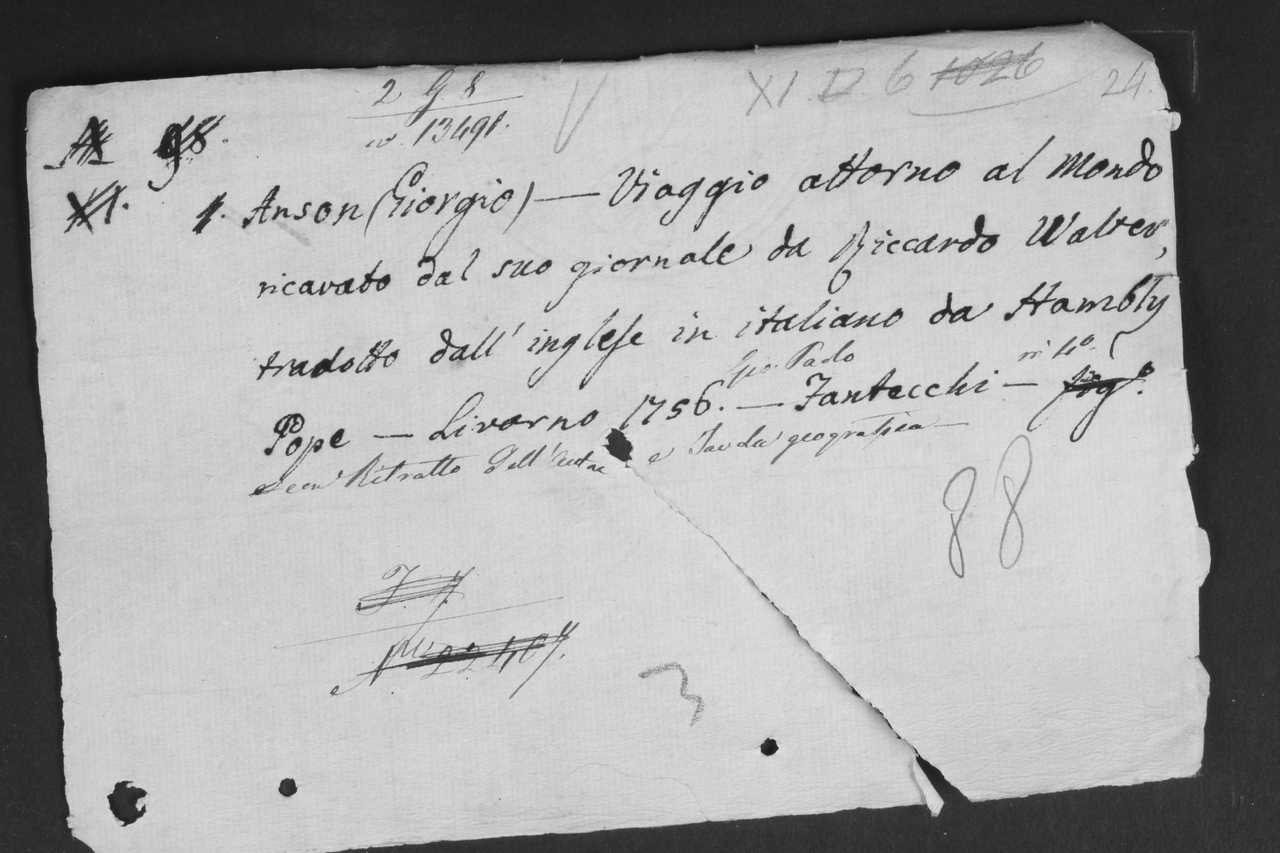 2 G 8
XI. D. 6 1026
24.
98.
n. 13491.
XI.
1. Anson (Giorgio) — Viaggio attorno al Mondo
ricavato dal suo giornale da Riccardo Walter,
tradotto dall' inglese in italiano da Hambly
Pope — Livorno 1756. — Gio. Paolo Fantecchi — in 4º. fig.º
e con Ritratto dell'Autore e Tavola geografica —
88
3